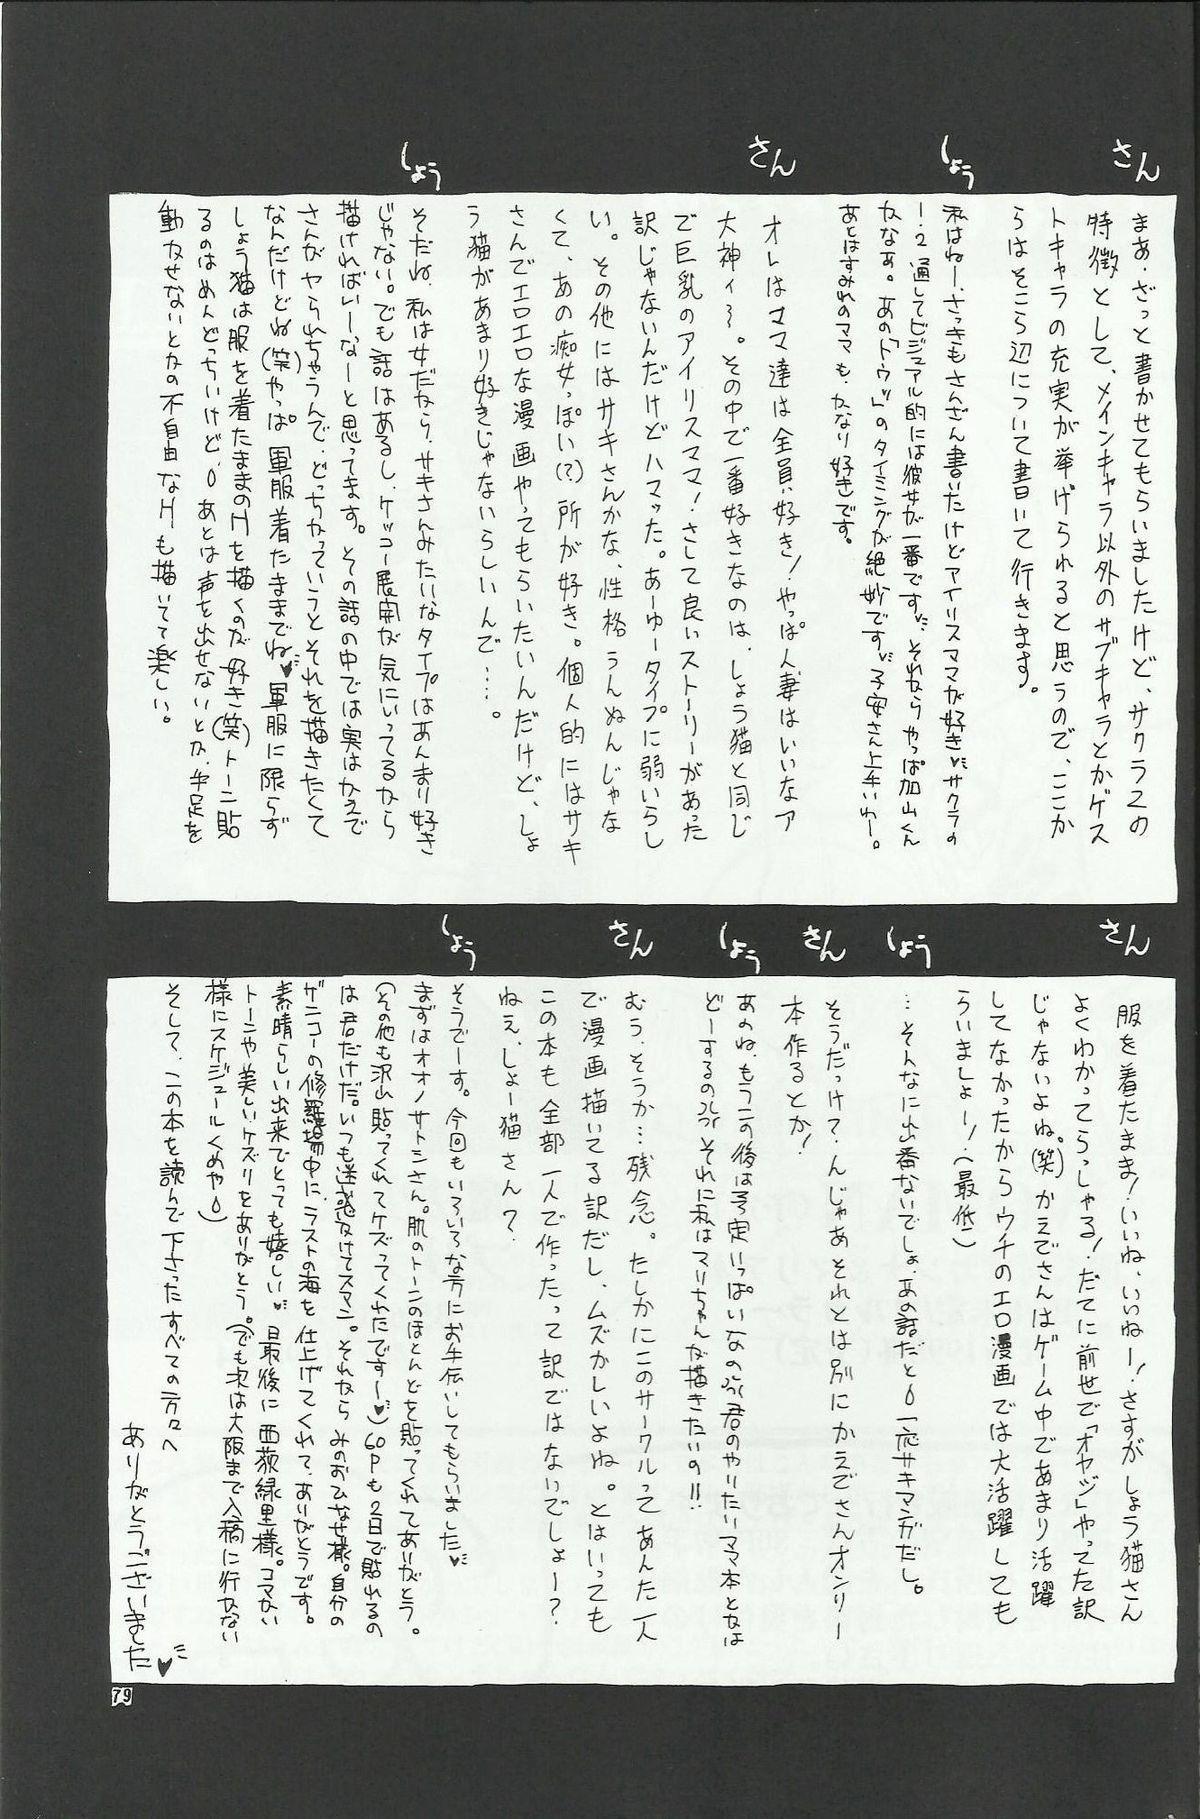 さん
まあ、ざっと書かせてもらいましたけど、サクラ2の
特徴として、メインキャラ以外のサブキャラとかゲス
トキャラの充実が挙げられると思うので、ここか
らはそこら辺について書いて行きます。
しょう
私はねー、さっきもさんざん書いたけどアイリスママが好き♥サクラの
1・2通してビジュアル的には彼女が一番です♥それならやっぱ加山くん
かなあ。あの「トウッ」のタイミングが絶妙です♥子安さん上手いわー。
あとはすみれのママも、かなり好きです。
さん
オレはママ達は全員好き!やっぱ人妻はいいなァ
大神ィ〜。その中で一番好きなのは、しょう猫と同じ
で巨乳のアイリスママ!さして良いストーリーがあった
訳じゃないんだけどハマった。あーゆータイプに弱いらし
い。その他にはサキさんかな、性格うんぬんじゃな
くて、あの痴女っぽい(?)所が好き。個人的にはサキ
さんでエロエロな漫画やってもらいたいんだけど、しょ
う猫があまり好きじゃないらしいんで…。
しょう
そだね、私は女だから、サキさんみたいなタイプはあんまり好き
じゃない。でも話はあるし、ケッコー展開が気にいってるなら
描ければいーなーと思ってます。その話の中では実はかえで
さんがヤられちゃうんで、どっちかっていうとそれを描きたくて
なんだけどね(笑)やっぱ軍服着たままでね♥軍服に限らず
しょう猫は服を着たままのHを描くのが好き(笑)トーン貼
るのはめんどっちいけど、あとは声を出せないとか、手足を
動かせないとかの不自由なHも描いてて楽しい。
さん
服を着たまま!いいね、いいねー!さすがしょう猫さん
よくわかってらっしゃる!だてに前世で「オヤジ」やってた訳
じゃないよね。(笑)かえでさんはゲーム中であまり活躍
してなかったからウチのエロ漫画では大活躍しても
らいましょー!(最低)
しょう
…そんなに出番ないでしょ、あの話だと 一応サキマンガだし。
さん
そうだっけ?んじゃあそれとは別にかえでさんオンリー
本作るとか!
しょう
あのね、もうこの後は予定いっぱいなの 君のやりたいママ本とかは
どーするの それに私はマリちゃんが描きたいの!!
さん
むう、そうか…残念。たしかにこのサークルってあんた一人
で漫画描いてる訳だし、ムズかしいよね。とはいっても
この本も全部一人で作ったって訳ではないでしょー?
ねえ、しょー猫さん?
しょう
そうでーす。今回もいろいろな方にお手伝いしてもらいました♥
まずはオオノサトシさん。肌のトーンのほとんどを貼ってくれてありがとう。
(その他も沢山貼ってくれてケズってくれたですー♥)60Pも2日で貼れるの
は君だけだ。いつも迷惑かけてスマン。それから みのおひなせ様。自分の
ゲンコーの修羅場中に、ラストの海を仕上げてくれて、ありがとうです。
素晴らしい出来でとっても嬉しい♥ 最後に西荻緑里様。コマかい
トーンや美しいケズリをありがとう。(でも次は大阪まで入稿に行かない
様にスケジュールくめや)
そして、この本を読んで下さったすべての方々へ
ありがとうございました♥
79